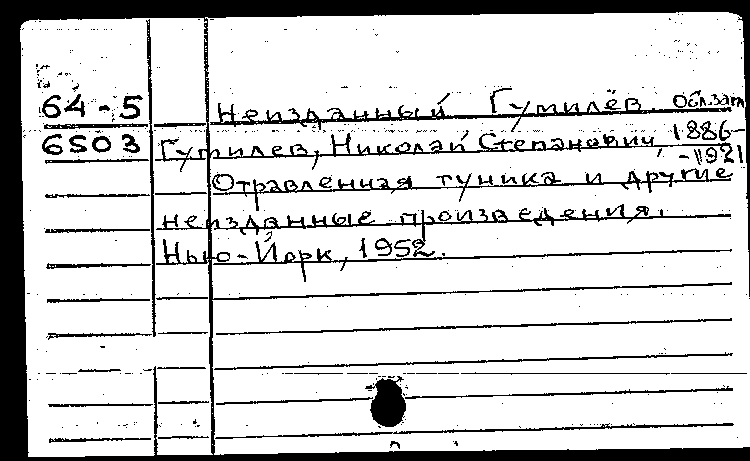 64-5 Неизданный Гумилёв. Обл.загл
6503 Гумилев, Николай Степанович, 1886-
-1921
Отравленная туника и другие
неизданные произведения.
Нью-Йорк, 1952.